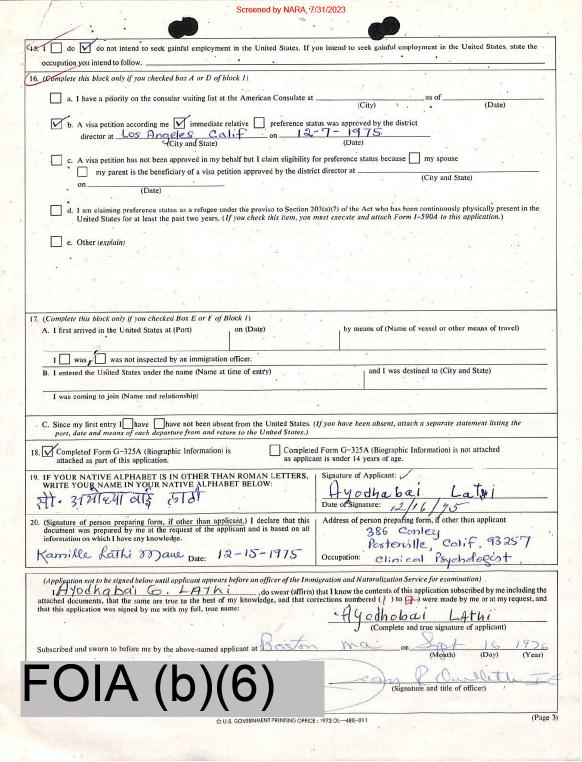 Screened by NARA, 7/31/2023
15. I do do not intend to seek gainful employment in the United States. If you intend to seek gainful employment in the United States, state the
occupation you intend to follow.
16. (Complete this block only if you checked box A or D of block 1)
a. I have a priority on the consular waiting list at the American Consulate at as of
(City) (Date)
b. A visa petition according me immediate relative preference status was approved by the district
director at Los Angeles, Calif on 12-7-1975
(City and State) (Date)
c. A visa petition has not been approved in my behalf but I claim eligibility for preference status because my spouse
my parent is the beneficiary of a visa petition approved by the district director at
(City and State)
on
(Date)
d. I am claiming preference status as a refugee under the proviso to Section 203(a)(7) of the Act who has been continuously physically present in the
United States for at least the past two years. (If you check this item, you must execute and attach Form I-590A to this application.)
e. Other (explain)
17. (Complete this block only if you checked Box E or F of Block 1)
A. I first arrived in the United States at (Port) on (Date) by means of (Name of vessel or other means of travel)
I was was not inspected by an immigration officer.
B. I entered the United States under the name (Name at time of entry) and I was destined to (City and State)
I was coming to join (Name and relationship)
C. Since my first entry I have have not been absent from the United States. (If you have been absent, attach a separate statement listing the
port, date and means of each departure from and return to the United States.)
18. Completed Form G-325A (Biographic Information) is Completed Form G-325A (Biographic Information) is not attached
attached as part of this application. as applicant is under 14 years of age.
19. IF YOUR NATIVE ALPHABET IS IN OTHER THAN ROMAN LETTERS, Signature of Applicant:
WRITE YOUR NAME IN YOUR NATIVE ALPHABET BELOW: Ayodhabai Lathi
सौ. अयोध्या बाई लाठी Date of Signature: 12/16/75
20. (Signature of person preparing form, if other than applicant.) I declare that this Address of person preparing form, if other than applicant
document was prepared by me at the request of the applicant and is based on all 386 Conley
information on which I have any knowledge. Porterville, Calif. 93257
Kamille Rathi Date: 12-15-1975 Occupation: Clinical Psychologist
(Application not to be signed below until applicant appears before an officer of the Immigration and Naturalization Service for examination)
I Ayodhabai G. LAThi, do swear (affirm) that I know the contents of this application subscribed by me including the
attached documents, that the same are true to the best of my knowledge, and that corrections numbered (1) to were made by me or at my request, and
that this application was signed by me with my full, true name:
Ayodhobai LAthi
(Complete and true signature of applicant)
Subscribed and sworn to before me by the above-named applicant at Boston Ma on Sept 16 1976
(Month) (Day) (Year)
FOIA (b)(6)
(Signature and title of officer)
☆ U.S. GOVERNMENT PRINTING OFFICE : 1973 OL—488-011
(Page 3)